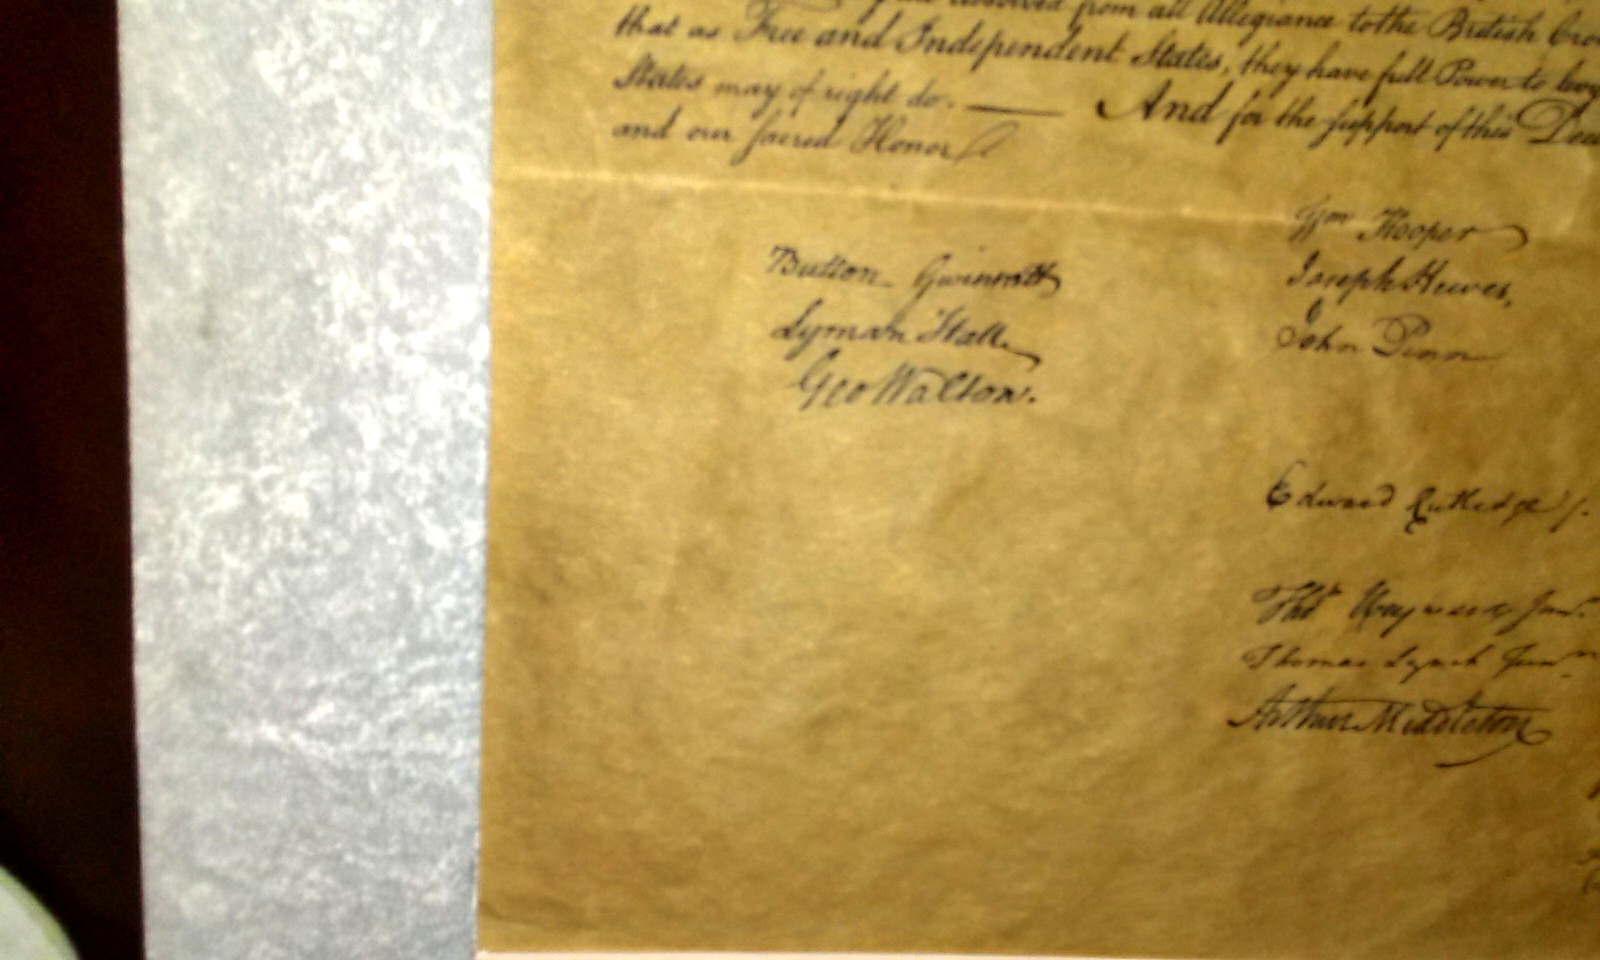 from all Allegiance to the British
that as Free and Independent States, they have full Power to levy
States may of right do. —— And for the support of this
and our sacred Honor
Button Gwinnett
Lyman Hall
Geo Walton.
Wm Hooper
Joseph Hewes,
John Penn
Edward Rutledge /.
Thos Heyward Junr.
Thomas Lynch Junr.
Arthur Middleton